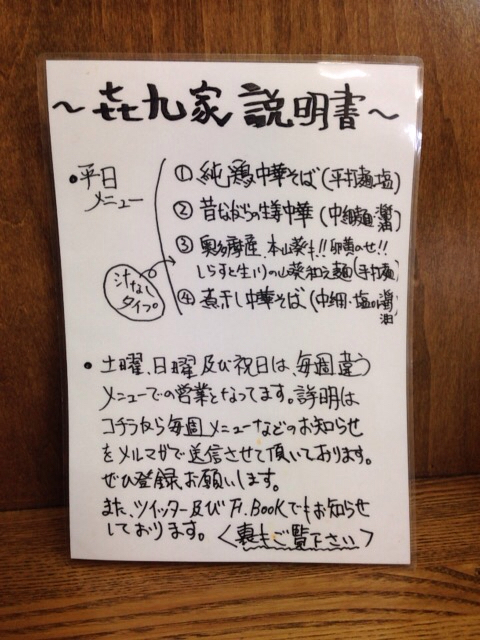 ～㐂九家 説明書～
●平日
メニュー
① 純鶏中華そば(平打麺・塩)
② 昔ながらの生姜中華(中細麺・醤油)
③ 奥多摩産、本山葵も!!卵黄のせ!!
しらすと生川の山葵和え麺(平打麺)
汁なし
タイプ。
④ 煮干し中華そば(中細・塩or醤油)
● 土曜、日曜及び祝日は、毎週違う
メニューでの営業となってます。説明は
コチラから毎週メニューなどのお知らせ
をメルマガで送信させて頂いております。
ぜひ登録お願いします。
また、ツイッター及びF.Bookでもお知らせ
しております。＜裏もご覧下さい＞